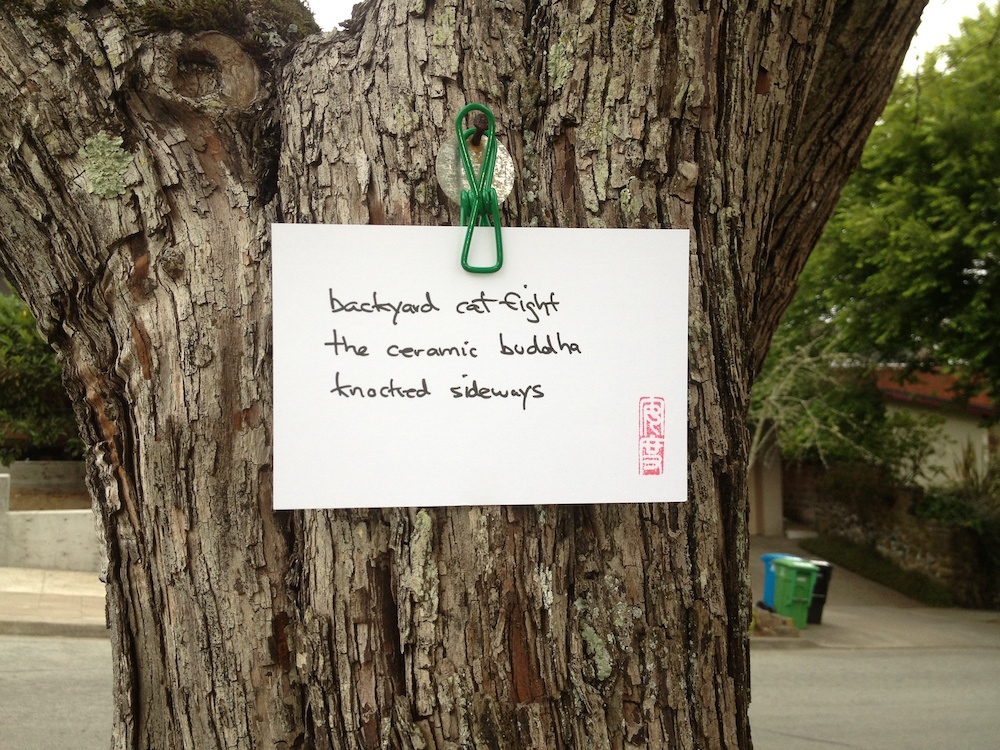 backyard cat fight
the ceramic buddha
knocked sideways